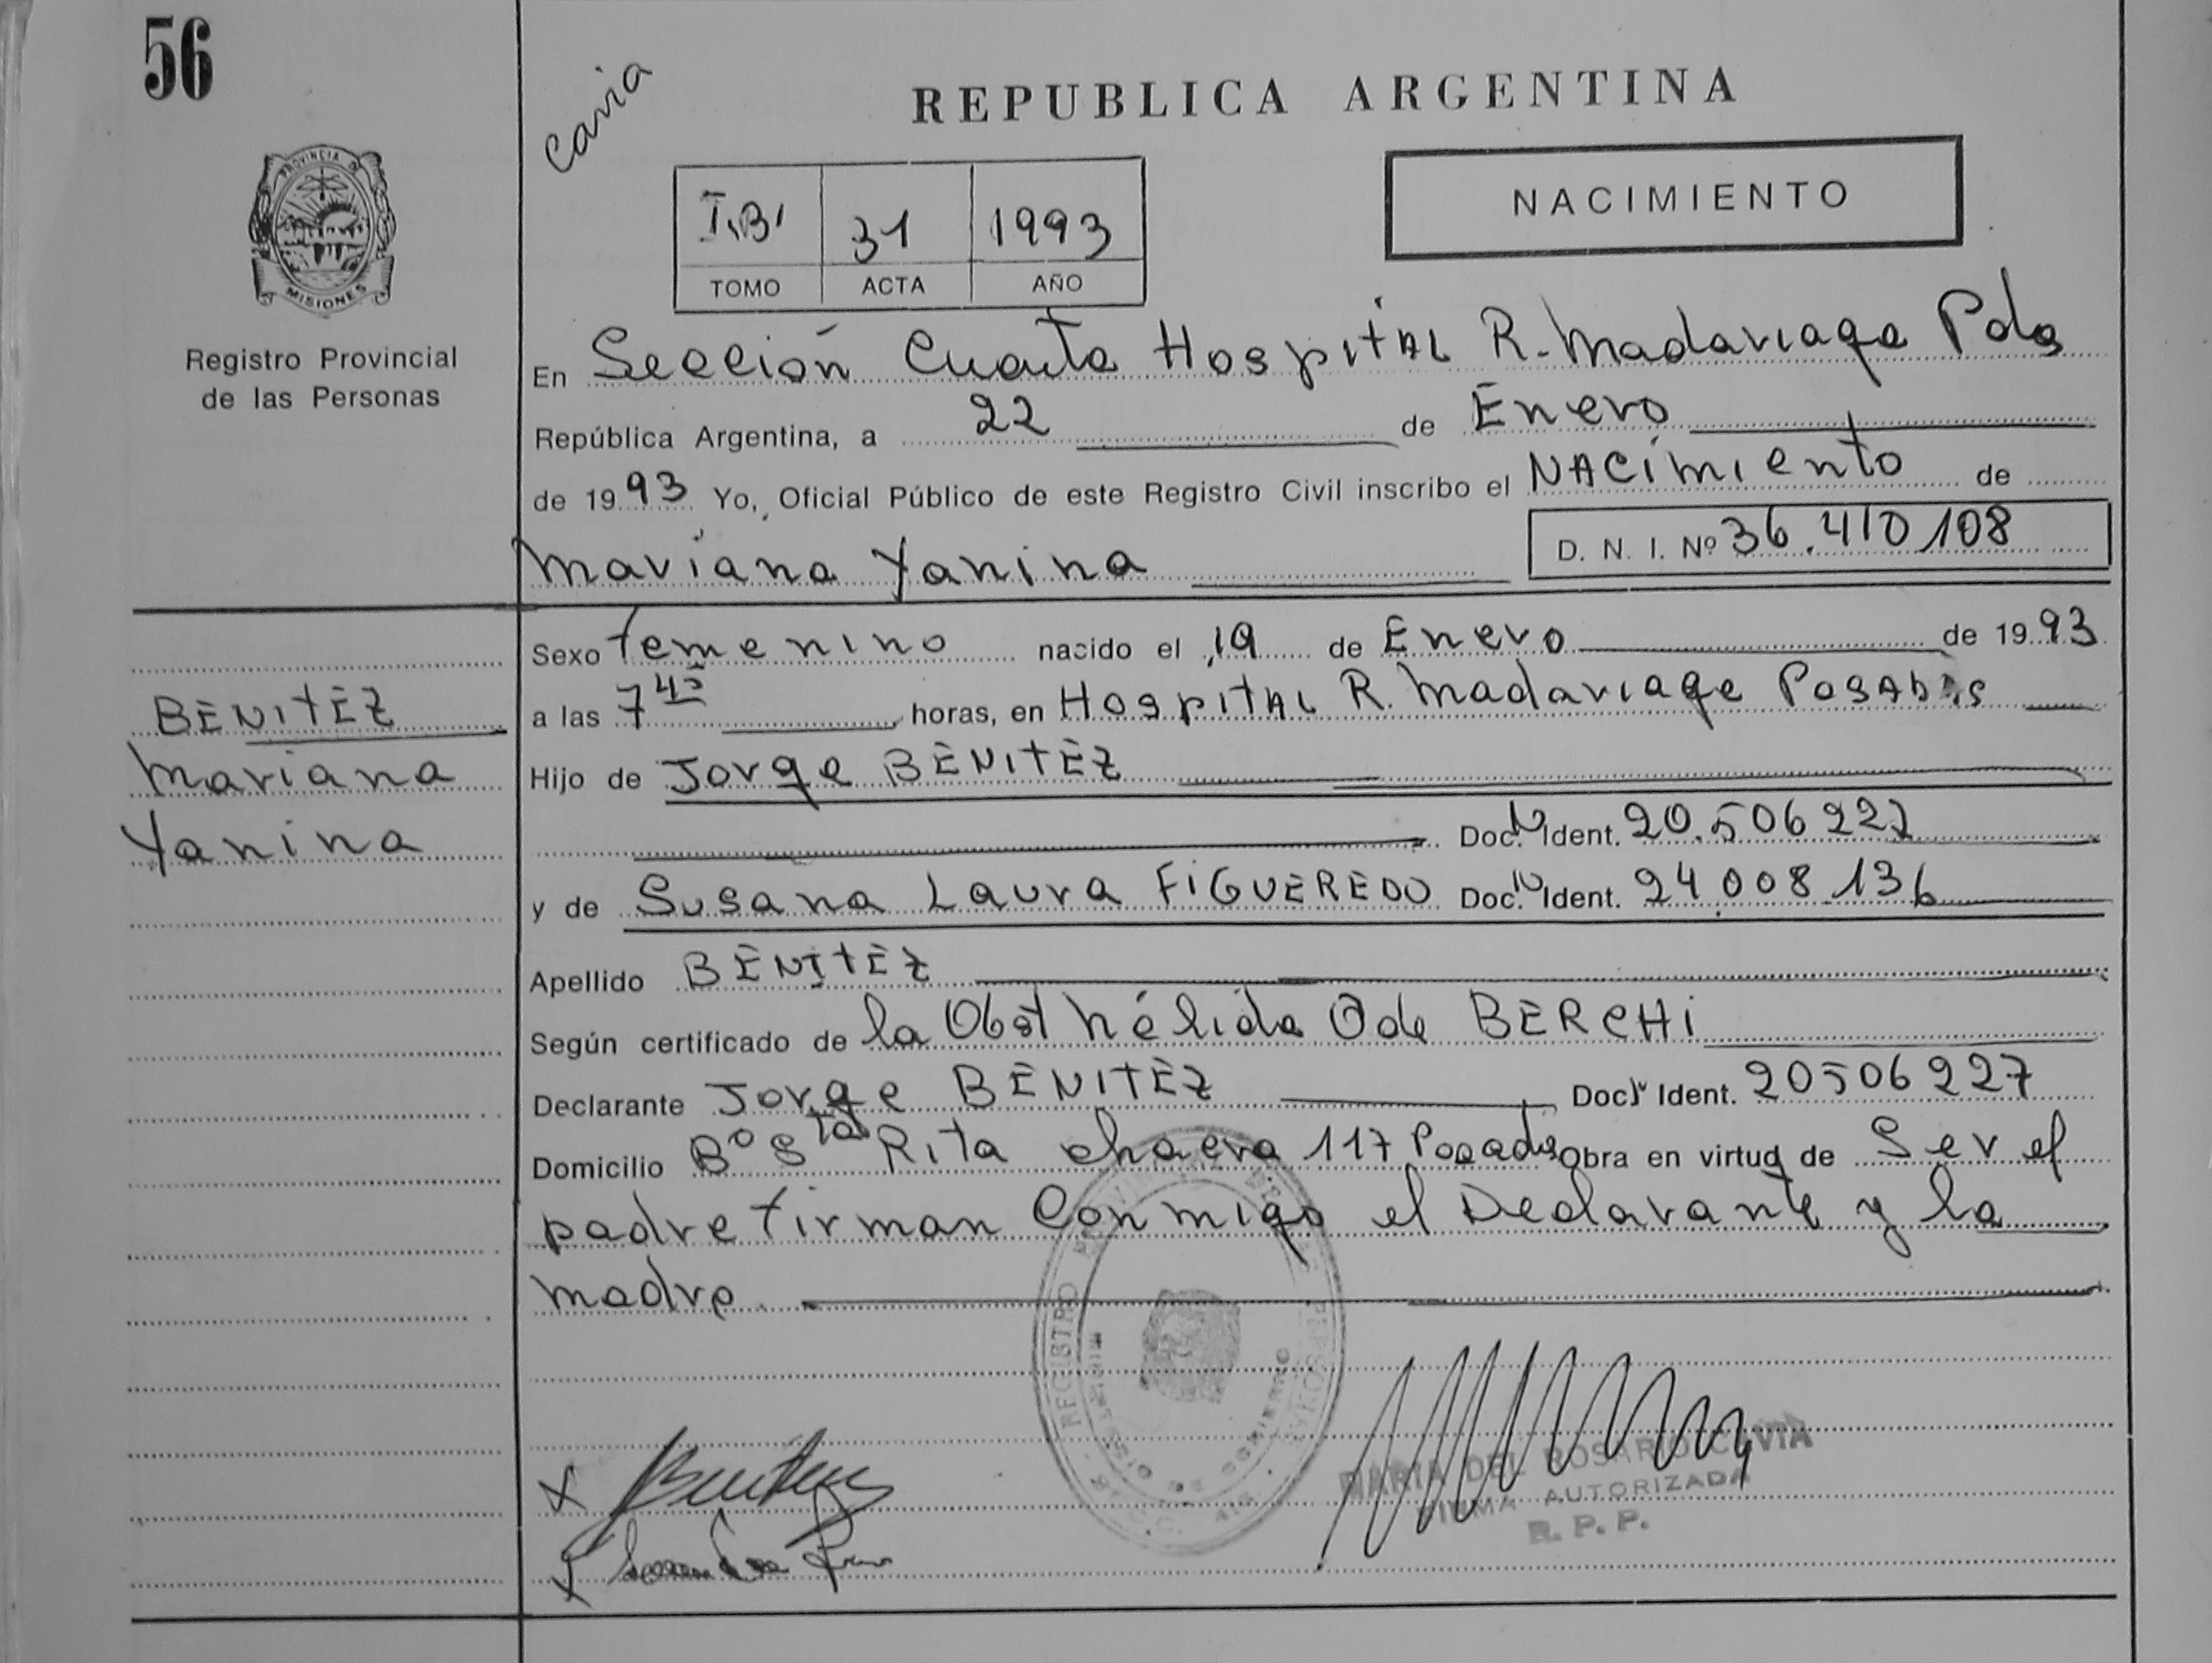 56
Cavia
REPUBLICA ARGENTINA
PROVINCIA DE
MISIONES
Registro Provincial
de las Personas
I.B. 31 1993
TOMO ACTA AÑO
NACIMIENTO
En Sección Cuarta Hospital R. Madariaga Pdas
República Argentina, a 22 de Enero
de 1993 Yo, Oficial Público de este Registro Civil inscribo el Nacimiento de
Mariana Yanina D. N. I. Nº 36.410.108
Sexo femenino nacido el 19 de Enero de 1993
a las 7 45 horas, en Hospital R. Madariaga Posadas
BENITEZ
Mariana
Yanina
Hijo de Jorge BENITEZ
Doc. N Ident. 20.506227
y de Susana Laura FIGUEREDO Doc. N Ident. 24.008.136
Apellido BENITEZ
Según certificado de la Obst Nélida O de BERCHI
Declarante Jorge BENITEZ Doc. N Ident. 20506227
Domicilio Bº Sta Rita chacra 117 Posadas Obra en virtud de Ser el
padre firman conmigo el Declarante y la
madre.
REGISTRO PROVINCIAL DE LAS PERSONAS
X Benitez
X
MARIA DEL ROSARIO CAVIA
FIRMA AUTORIZADA
R. P. P.